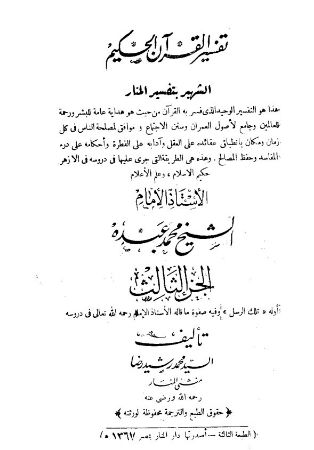 تفسير القرآن الحكيم
الشهير بتفسير المنار
هذا هو التفسير الوحيد الذى فسر به القرآن من حيث هو هداية عامة للبشر ورحمة
للعالمين وجامع لأصول العمران وسنن الاجتماع وموافق لمصلحة الناس فى كل
زمان ومكان بانطباق عقائده على العقل وآدابه على الفطرة وأحكامه على درء
المفاسد وحفظ المصالح. وهذه هى الطريقة التى جرى عليها فى دروسه فى الأزهر
حكيم الاسلام، وعلم الأعلام
الأستاذ الإمام
الشيخ محمد عبده
الجزء الثالث
أوله « تلك الرسل » وفيه صفوة ما قاله الأستاذ الإمام رحمه الله تعالى فى دروسه
تأليف
السيد محمد رشيد رضا
منشئ المنار
رحمه الله ورضى عنه
حقوق الطبع والترجمة محفوظة لورثته
الطبعة الثالثة – أصدرتها دار المنار بمصر ١٣٦٧ هـ